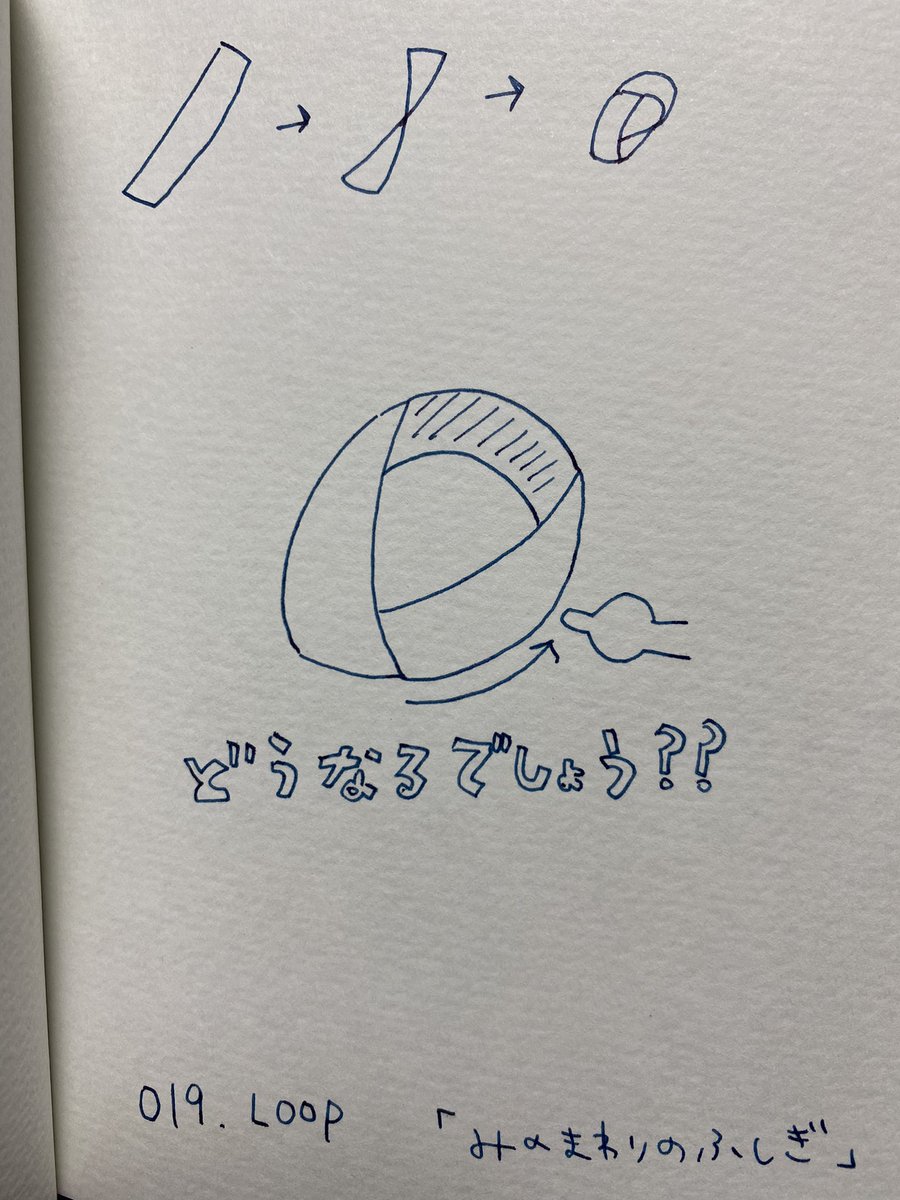 どうなるでしょう??
019. Loop 「みのまわりのふしぎ」